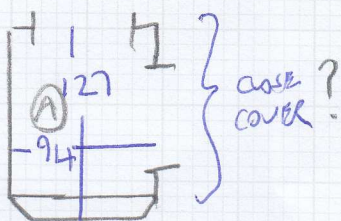 127
A
94
CLOSE
COVER ?